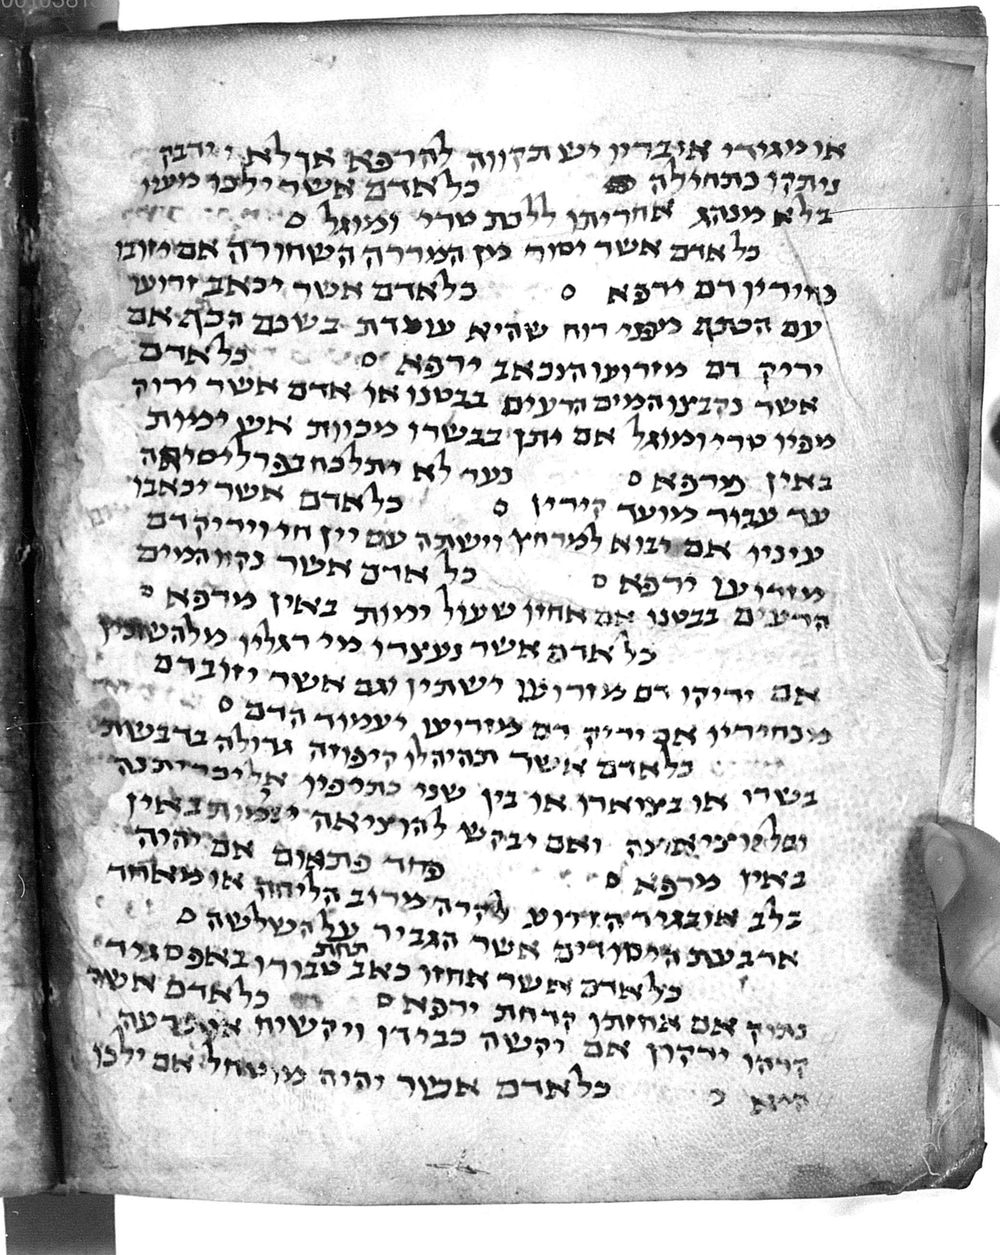 או מגידי אבריו יש תקווה להרפא אך לא ידבק
ניתקו כתחילה כל אדם אשר ילכו מעיו
בלא מנהג אחריתו ללכת טרי ומוגל
כל אדם אשר יסורי מין המררה השחורה אם יזובו
נחיריו דם ירפא כל אדם אשר יכאב זרוע
עם הכתף מפני רוח שהיא עומדת בשכם הכף אם
יריק דם מזרועו הנכאב ירפא כל אדם
אשר נקבצו המים הרעים בבטנו או אדם אשר ירוק
מפיו טרי ומוגל אם יתן בבשרו מכוות אש ימות
באין מרפא נער לא יתלכח בפרליסיאה
עד עבור מועד קירין כל אדם אשר יכאבו
עיניו אם יבוא למרחץ וישתה עם יין חי ויריק דם
מזרוען ירפא כל אדם אשר נקוו המים
הרעים בבטנו אם אחזו שעול ימות באין מרפא
כל אדם אשר נעצרו מי רגליו מלהשתין
אם יריקו דם מזרוען ישתין וגם אשר יזוב דם
מנחיריו אם יריק דם מזרוען יעמוד הדם
כל אדם אשר תהיה לו קיפוזה גדולה בדבשת
בשרו או בצוארו או בין שני כתיפיו אל יכריתנה
ובל יוציאינה ואם יבקש להוציאה ימות באין
באין מרפא פחד פתאום אם יהיה
בלב או בגיד הזרוע יקרה מרוב הליחה או מאחד
ארבעת היסודים אשר הגביר על השלשה
כל אדם אשר אחזו כאב תחת טבורו באפס גיד
נתוק אם אחזתו קדחת ירפא כל אדם אשר
קרהו ירקון אם יקשה כבידו ויקשיח רעה
היא כל אדם אשר יהיה מוטחל אם ילכו